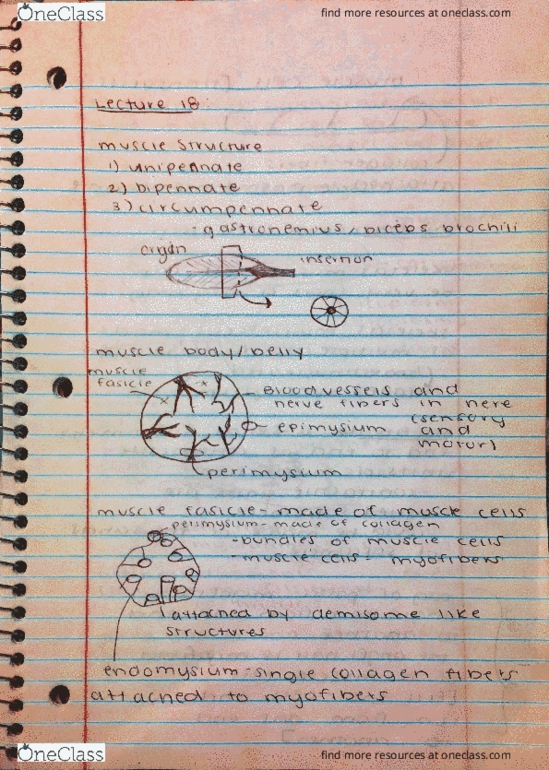 OneClass
find more resources at oneclass.com
Lecture 18:
muscle structure
1) unipennate
2) bipennate
3) circumpennate
- gastronemius/biceps brachili
origin
insertion
muscle body/belly
muscle
fasicle
Blood vessels and
nerve fibers in here
(sensory
and
motor)
epimysium
perimysium
muscle fasicle - made of muscle cells
perimysium - made of collagen
- bundles of muscle cells
- muscle cells = myofibers
attached by demisome like
structures
endomysium - single collagen fibers
attached to myofibers
OneClass
find more resources at oneclass.com